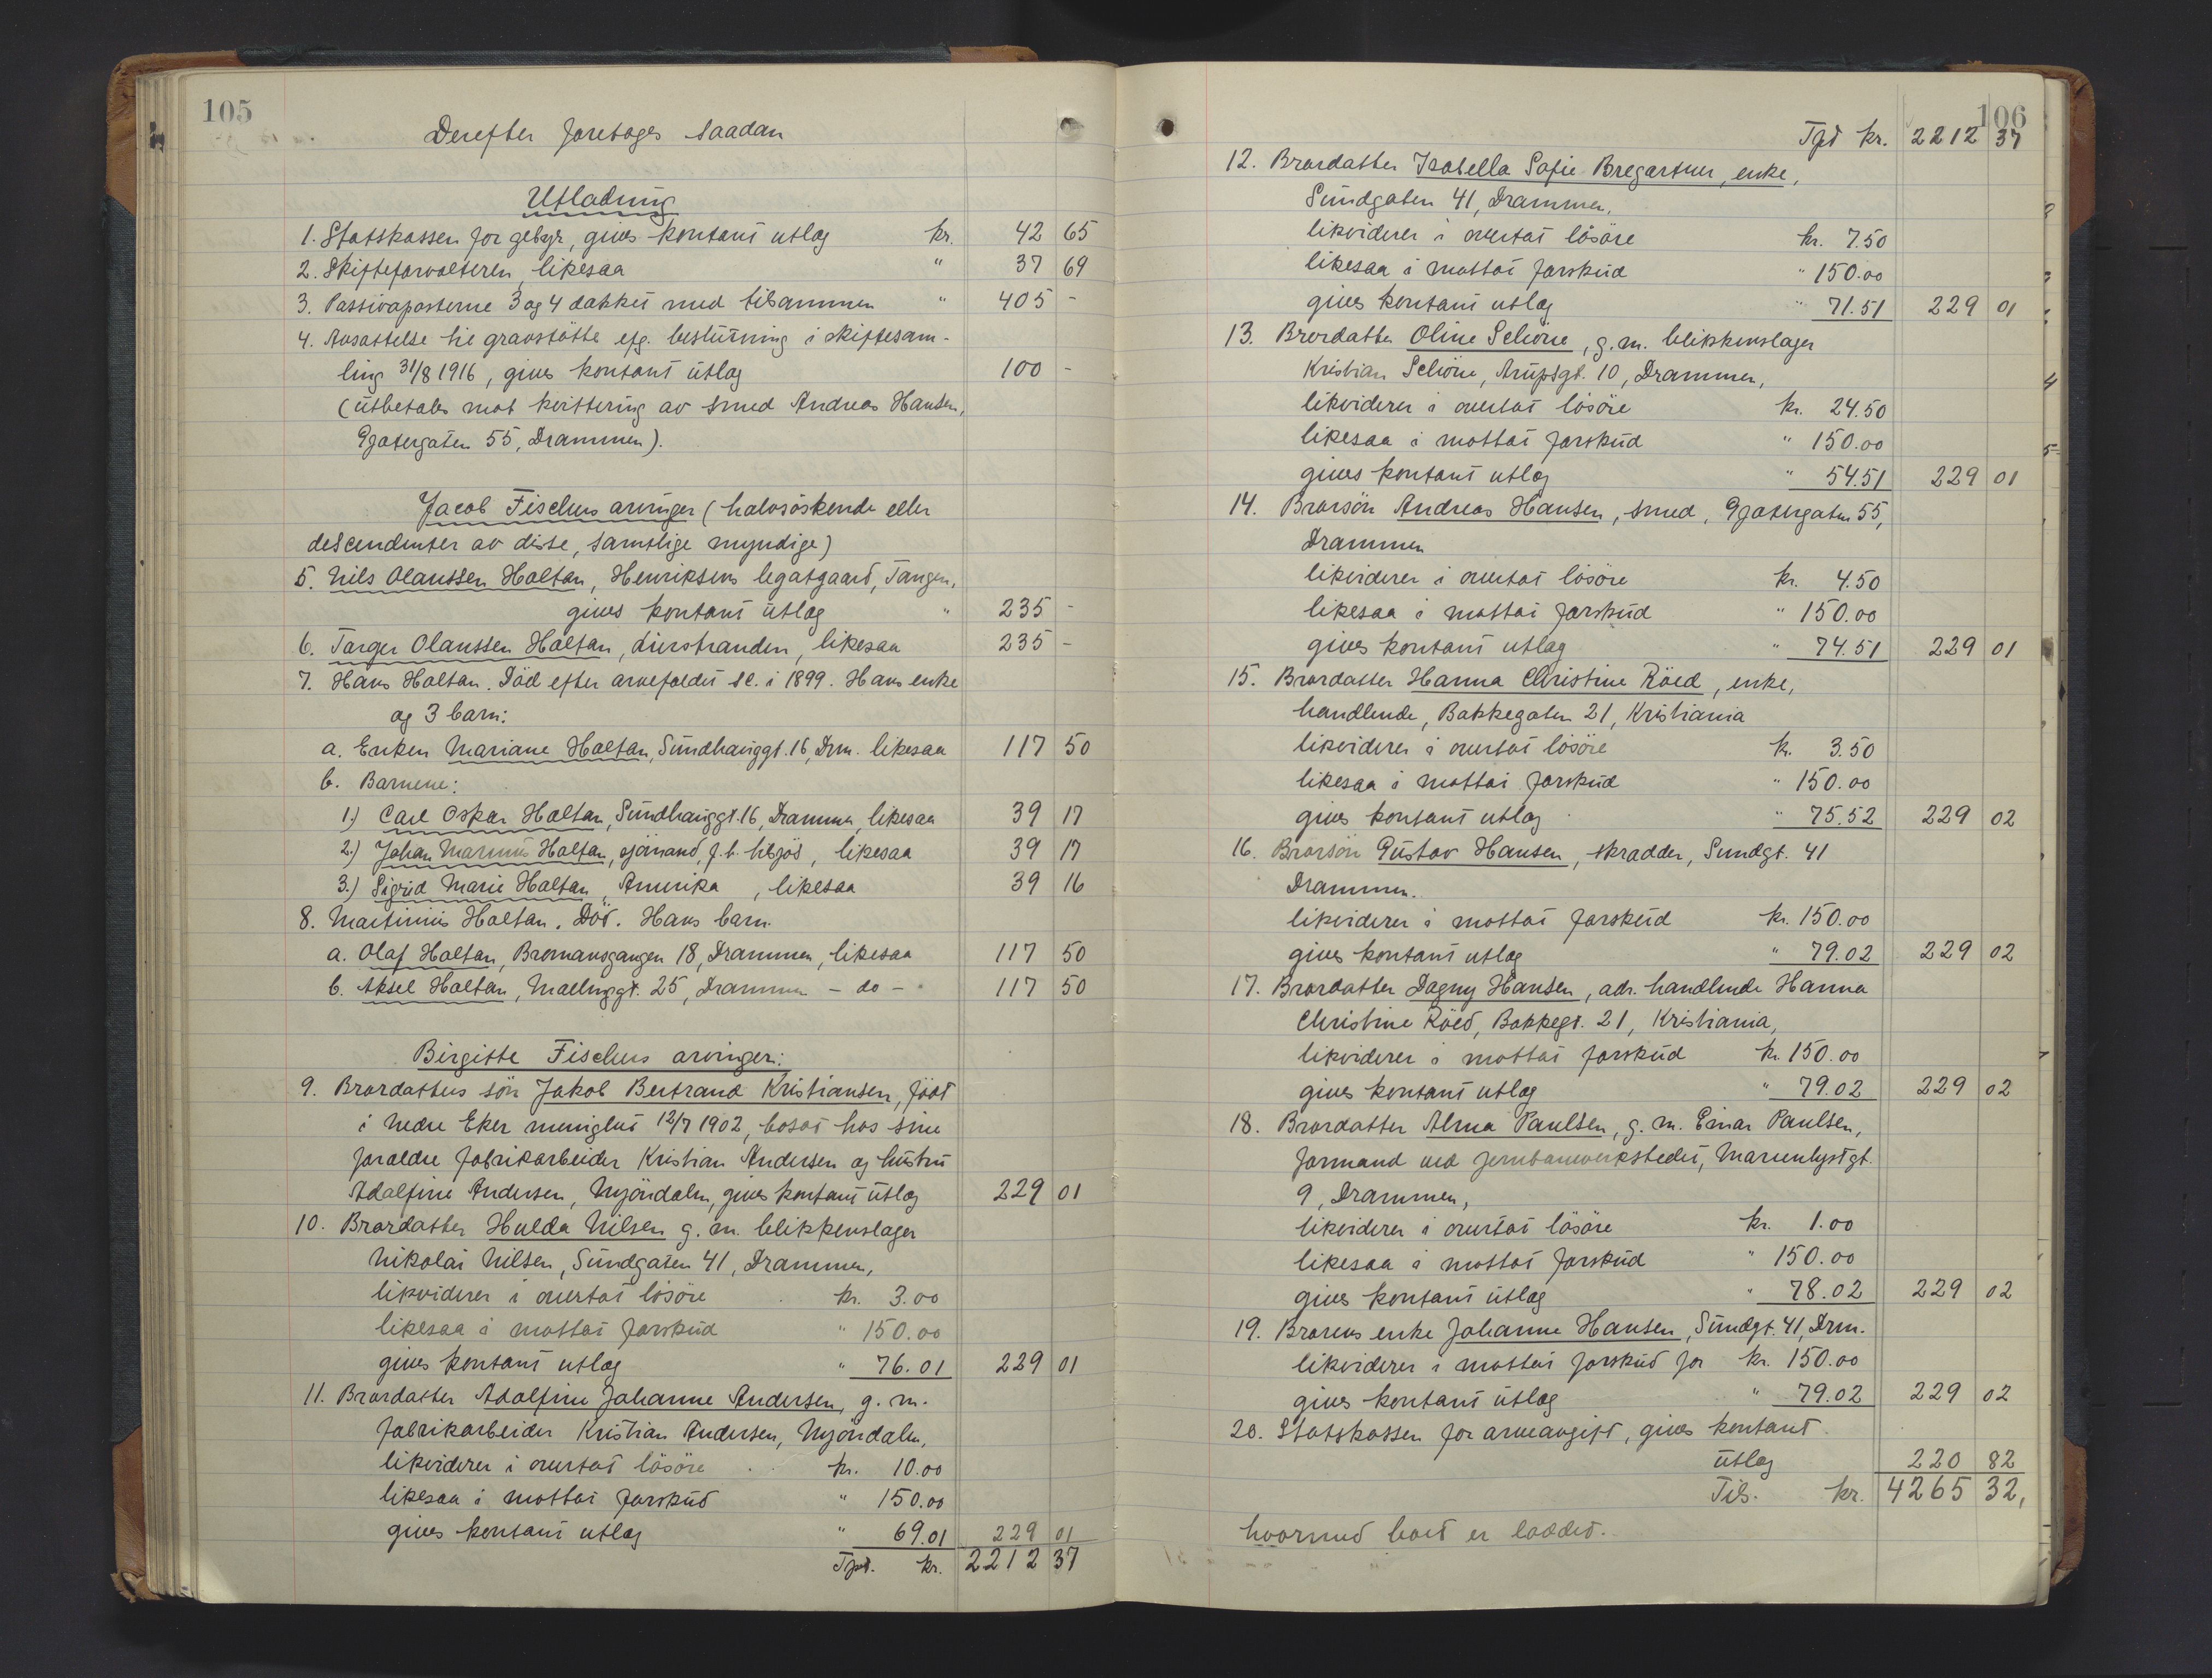 105
Derefter foretages saadan
Utlodning
1. Statskassen for gebyr, gives kontant utlæg kr. 42 65
2. Skifteforvalteren, likesaa " 37 69
3. Passivaposterne 3 og 4 dækket med tilsammen " 405 -
4. Avsættelse til gravstötte efg. beslutning i skiftesam-
ling 31/8 1916, gives kontant utlæg 100 -
(utbetales mot kvittering av smed Andreas Hansen,
Gjætergaten 55, Drammen).
Jacob Fischers arvinger (halvsöskende eller
descendenter av disse, samtlige myndige)
5. Nils Olaussen Holtan, Henriksens legatgaard, Tangen,
gives kontant utlæg " 235 -
6. Torger Olaussen Holtan, Lierstranden, likesaa 235 -
7. Hans Holtan. Död efter arvefaldet sl. i 1899. Hans enke
og 3 barn:
a. Enken Mariane Holtan, Sundhauggt. 16, Drm. likesaa 117 50
b. Barnene:
1.) Carl Oskar Holtan, Sundhauggt. 16, Drammen, likesaa 39 17
2.) Johan Marinus Holtan, sjömand, f.t. tilsjös, likesaa 39 17
3.) Sigrid Marie Holtan, Amerika, likesaa 39 16
8. Martinius Holtan. Död. Hans barn.
a. Olaf Holtan, Bromansgangen 18, Drammen, likesaa 117 50
b. Aksel Holtan, Mællinggt. 25, Drammen - do - 117 50
Birgitte Fischers arvinger:
9. Brordatters sön Jakob Bertrand Kristiansen, födt
i Nedre Eker menighet 12/7 1902, bosat hos sine
forældre fabrikarbeider Kristian Andersen og hustru
Adolfine Andersen, Mjöndalen, gives kontant utlæg 229 01
10. Brordatter Hulda Nilsen g. m. blikkenslager
Nikolai Nilsen, Sundgaten 41, Drammen,
likviderer i overtat lösöre kr. 3.00
likesaa i mottat forskud " 150.00
gives kontant utlæg " 76.01 229 01
11. Brordatter Adolfine Johanne Andersen, g. m.
fabrikarbeider Kristian Andersen, Mjöndalen,
likviderer i overtat lösöre kr. 10.00
likesaa i mottat forskud " 150.00
gives kontant utlæg " 69.01 229 01
Tpt. kr. 2212 37
106
Tpt kr. 2212 37
12. Brordatter Isabella Sofie Bregartner, enke,
Sundgaten 41, Drammen,
likviderer i overtat lösöre kr. 7.50
likesaa i mottat forskud " 150.00
gives kontant utlæg " 71.51 229 01
13. Brordatter Oline Schöne, g. m. blikkenslager
Kristian Schöne, Arupsgt. 10, Drammen,
likviderer i overtat lösöre kr. 24.50
likesaa i mottat forskud " 150.00
gives kontant utlæg " 54.51 229 01
14. Brorsön Andreas Hansen, smed, Gjætergaten 55,
Drammen
likviderer i overtat lösöre kr. 4.50
likesaa i mottat forskud " 150.00
gives kontant utlæg " 74.51 229 01
15. Brordatter Hanna Christine Röed, enke,
handlende, Bakkegaten 21, Kristiania
likviderer i overtat lösöre kr. 3.50
likesaa i mottat forskud " 150.00
gives kontant utlæg " 75.52 229 02
16. Brorsön Gustav Hansen, skrædder, Sundgt. 41
Drammen.
likviderer i mottat forskud kr. 150.00
gives kontant utlæg " 79.02 229 02
17. Brordatter Dagny Hansen, adr. handlende Hanna
Christine Röed, Bakkegt. 21, Kristiania,
likviderer i mottat forskud kr. 150.00
gives kontant utlæg " 79.02 229 02
18. Brordatter Alma Paulsen, g. m. Einar Paulsen,
formand ved jernbaneverkstedet, Marienlystgt.
9, Drammen,
likviderer i overtat lösöre kr. 1.00
likesaa i mottat forskud " 150.00
gives kontant utlæg " 78.02 229 02
19. Brorens enke Johanne Hansen, Sundgt. 41, Drm.
likviderer i mottat forskud for kr. 150.00
gives kontant utlæg " 79.02 229 02
20. Statskassen for arveavgift, gives kontant
utlæg 220 82
Tils. kr. 4265 32,
hvormed boet er loddet.